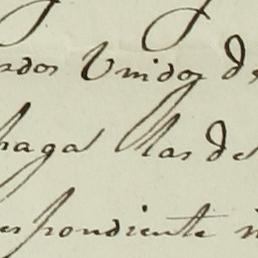 ados Unidos de
haga las de
espondiente i